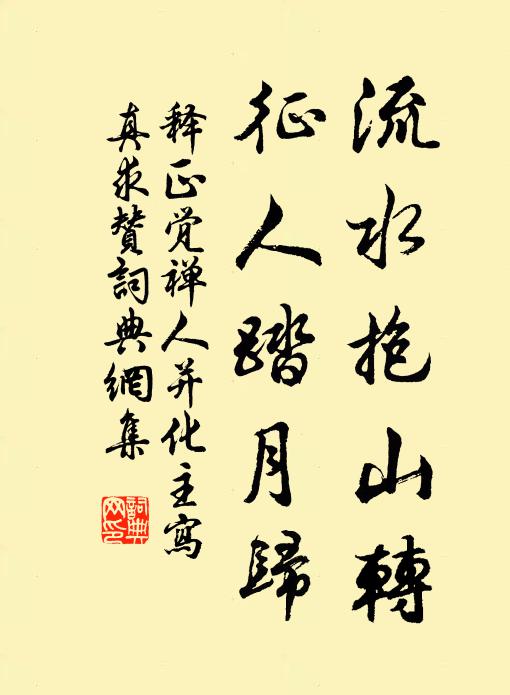 流水抱山轉
征人踏月歸
释正觉禅人并化主寫
真求贊詞典網集
詞典网印